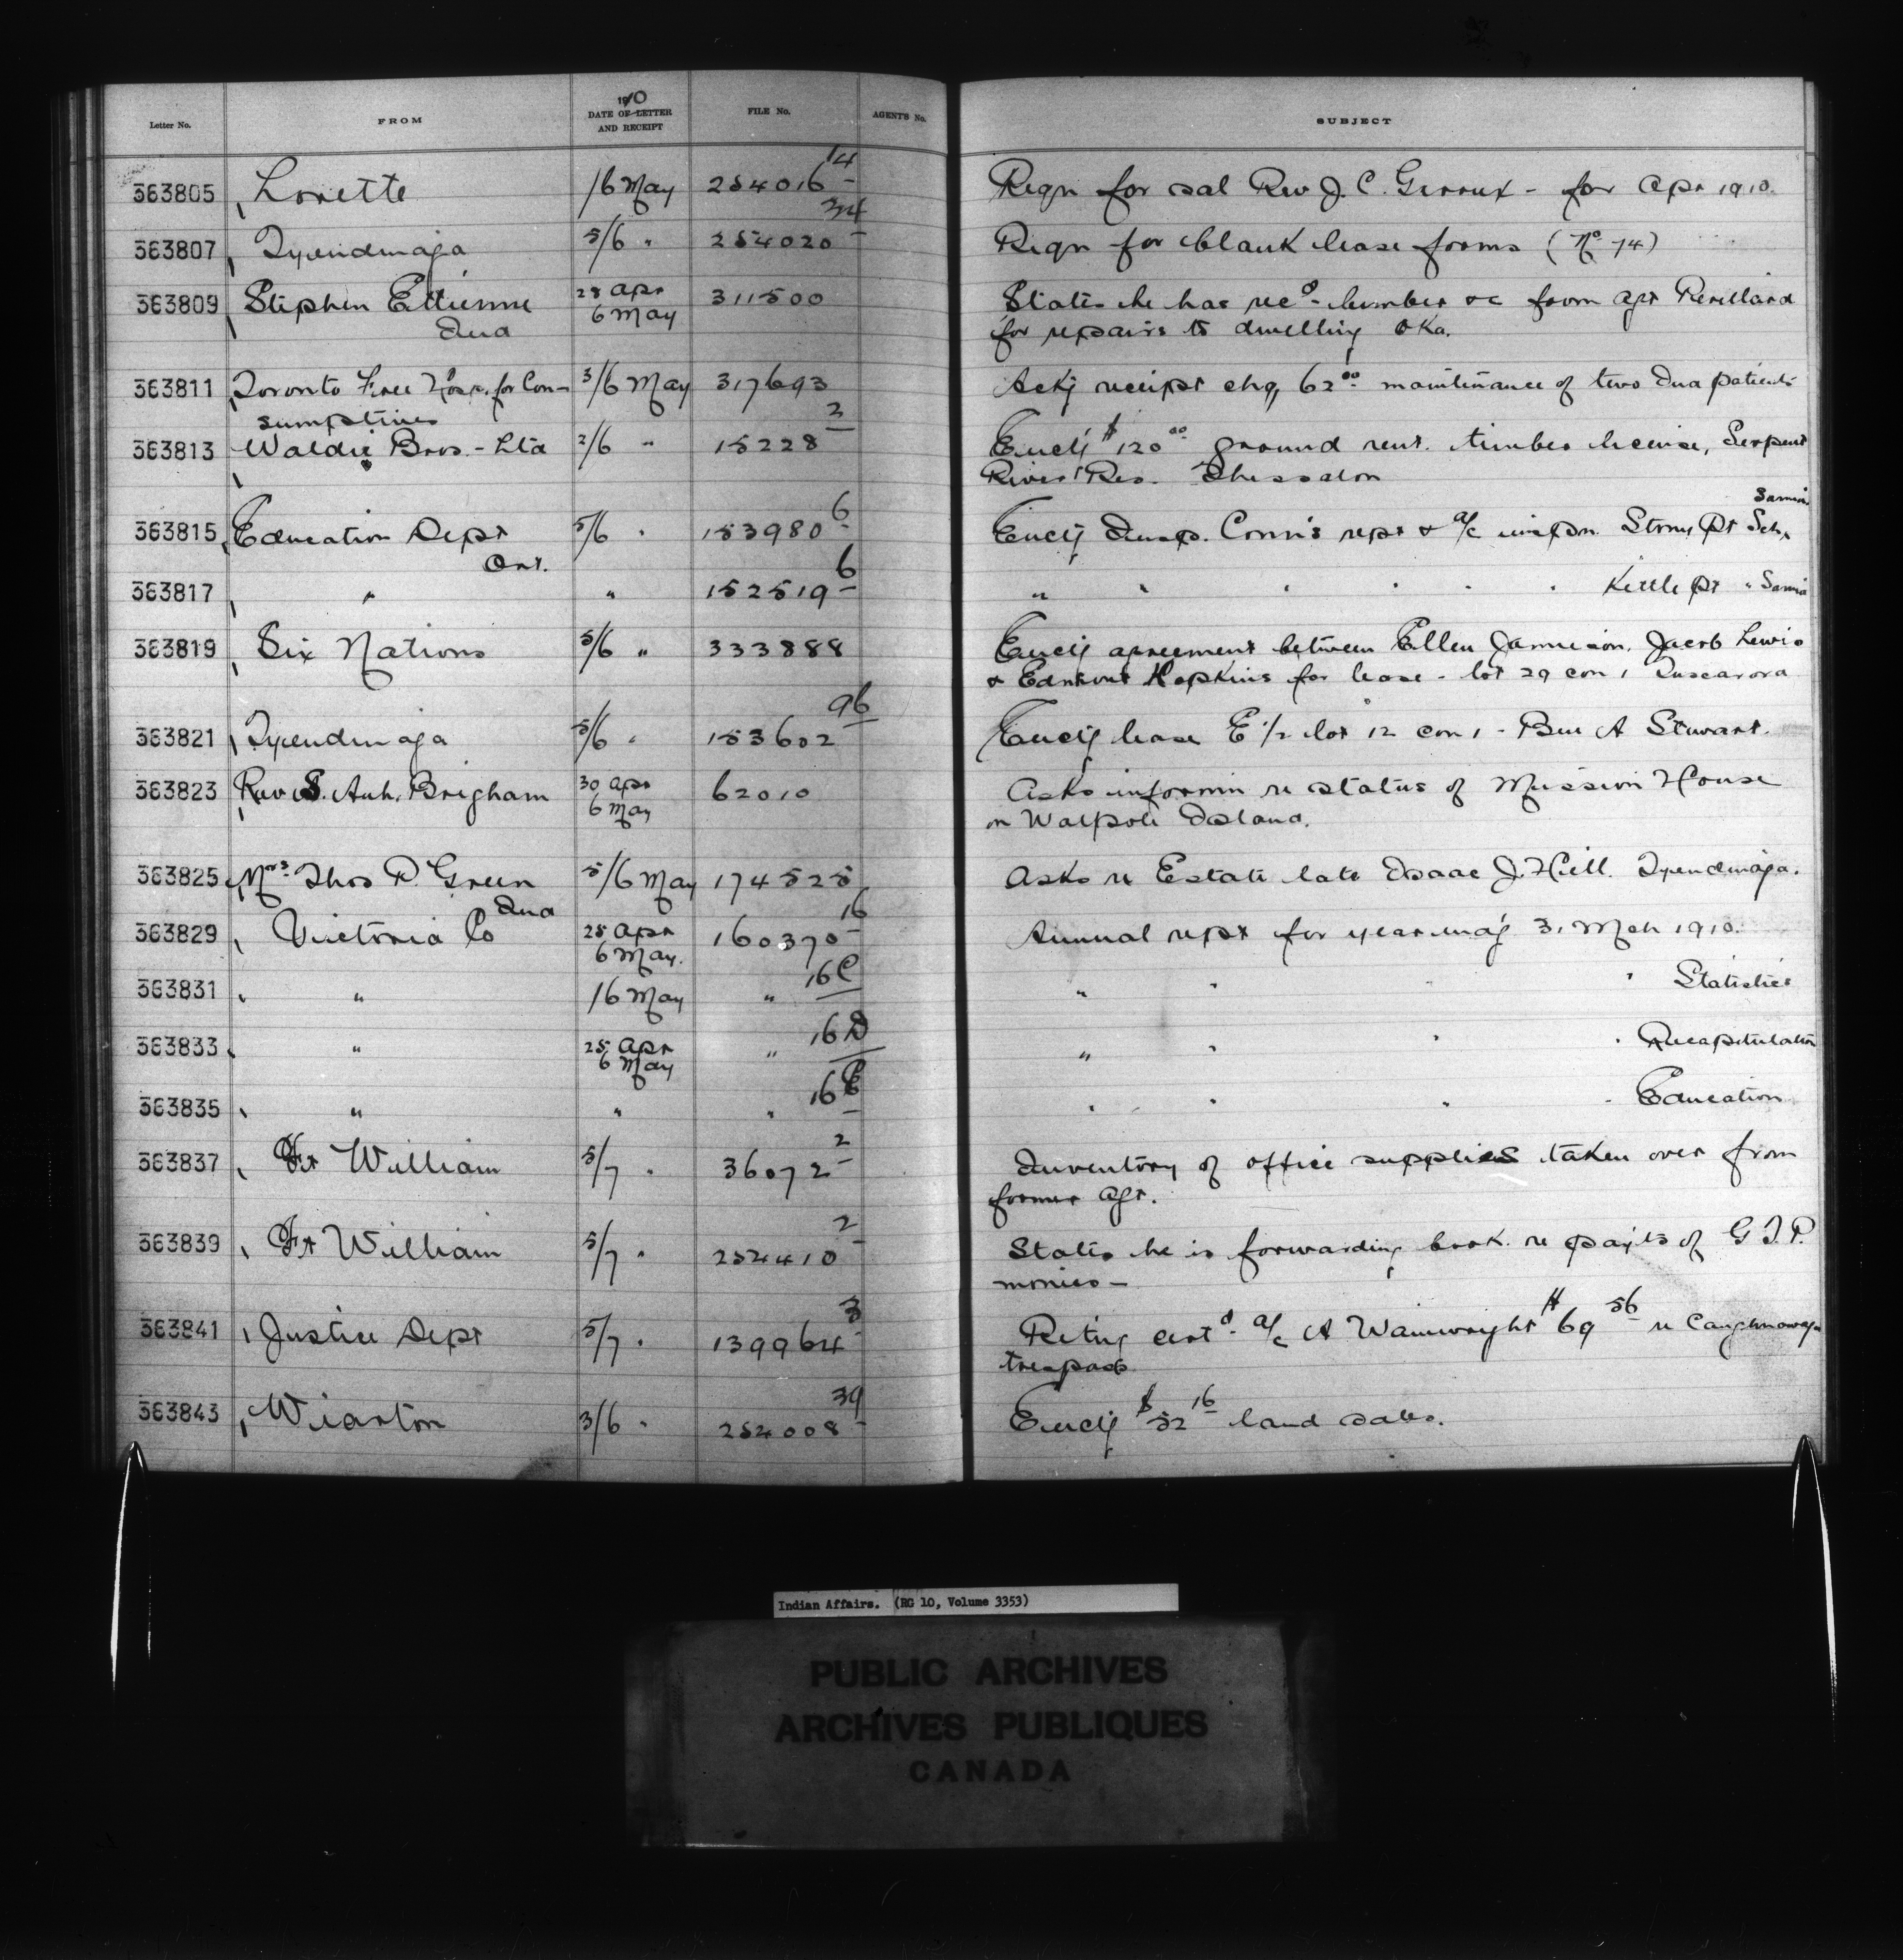 Letter No. FROM 1910 DATE OF LETTER AND RECEIPT FILE No. AGENT'S No. SUBJECT
363805 Lorette 16 May 254016 14 Reqn for sal Rev J. C. Giroux - for Apr 1910.
363807 Tyendinaga 5/6 " 254020 34 Reqn for blank lease forms (No 74)
363809 Stephen Ettienne 28 Apr 311500 States he has recd lumber &c from Agt Perillard
Ind 6 May for repairs to dwelling Oka.
363811 Toronto Free Hosp. for Con- 3/6 May 317693 Ackg receipt chq 62 00 maintenance of two Ind patients
sumptives
363813 Waldie Bros. - Ltd 2/6 " 15228 2 Enclg $120 00 ground rent. timber license, Serpent
River Res. Thessalon
363815 Education Dept 5/6 " 153980 6 Enclg Insp. Conn's rept & a/c inspn. Stony Pt Sch, Sarnia
Ont.
363817 " " 152519 6 " " " " " " Kettle Pt " Sarnia
363819 Six Nations 5/6 " 333888 Enclg agreement between Ellen Jamieson, Jacob Lewis
& Edmund Hopkins for lease - lot 29 con 1 Tuscarora
363821 Tyendinaga 5/6 " 153602 96 Enclg lease E 1/2 lot 12 con 1 - Ben A Stewart.
363823 Rev S. Auh. Brigham 30 Apr 62010 Asks informn re status of Mission House
6 May on Walpole Island.
363825 Mrs Thos P. Green 5/6 May 174525 Asks re Estate late Isaac J. Hill. Tyendinaga.
Ind
363829 Victoria Co 25 Apr 160370 16 Annual rept for year endg 31 Mch 1910.
6 May.
363831 " 16 May " 16C " " " " Statistics
363833 " 25 Apr " 16D " " " " Recapitulation
6 May
363835 " " " 16E " " " " Education
363837 Ft William 5/7 " 36072 2 Inventory of office supplies taken over from
former Agt.
363839 Ft William 5/7 " 252410 2 States he is forwarding book re payts of G.T.P.
monies -
363841 Justice Dept 5/7 " 139964 3 Retng certd a/c A Wainwright $69 56 re Caughnawaga
trespass
363843 Wiarton 3/6 " 252008 39 Enclg $52 16 land sales.
Indian Affairs. (RG 10, Volume 3353)
PUBLIC ARCHIVES
ARCHIVES PUBLIQUES
CANADA